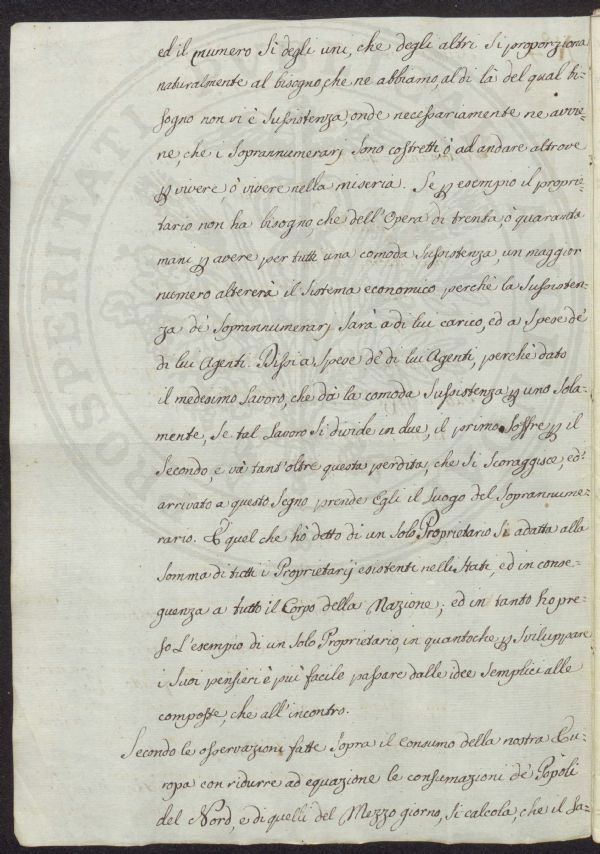 ed il numero sì degli uni, che degli altri si proporziona
naturalmente al bisogno, che ne abbiamo, al di là del qual bi-
sogno non vi è sussistenza, onde necessariamente ne avvie-
ne, che i soprannumerarj sono costretti, ò ad andare altrove
ꝑ vivere, ò vivere nella miseria. Se ꝑ esempio il proprie-
tario non ha bisogno che dell'Opera di trenta, ò quaranta
mani ꝑ avere per tutti una comoda sussistenza, un maggior
numero altererà il sistema economico perchè la sussisten-
za de' soprannumerarj sarà a di lui carico, ed a spese de'
di lui Agenti. Dissi a spese de' di lui Agenti, perchè dato
il medesimo lavoro, che dà la comoda sussistenza ꝑ uno sola-
mente, se tal lavoro si divide in due, il primo soffre ꝑ il
secondo, e và tant'oltre questa perdita, che si scoraggisce, ed
arrivato a questo segno prende Egli il luogo del soprannume-
rario. E quel che hò detto di un solo Proprietario si adatta alla
somma di tutti i Proprietarij esistenti nelli Stati, ed in conse-
guenza a tutto il Corpo della Nazione; ed in tanto ho pre-
so l'esempio di un solo Proprietario, in quantoche ꝑ sviluppare
i suoi pensieri è più facile passare dalle idee semplici alle
composte, che all'incontro.
Secondo le osservazioni fatte sopra il consumo della nostra Eu-
ropa con ridurre ad equazione le consumazioni de' Popoli
del Nord, e di quelli del Mezzo giorno, si calcola, che il sa-
PROSPERITATI